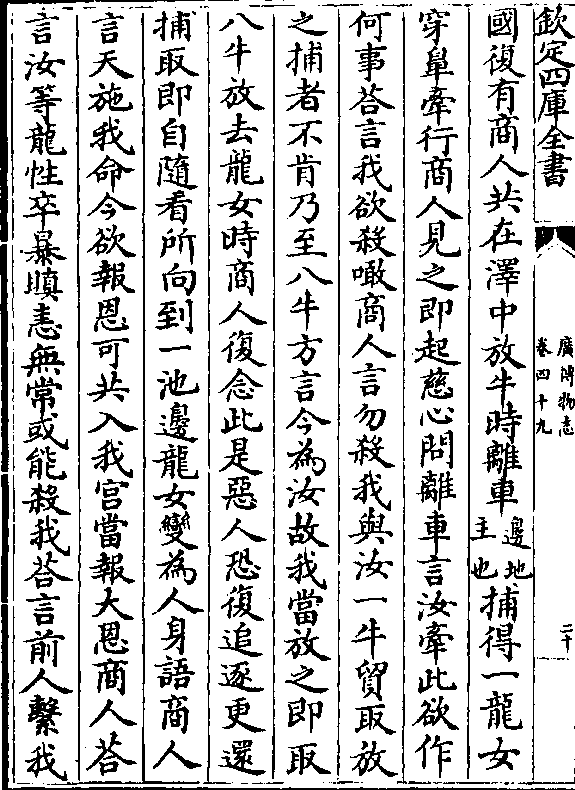 欽定四庫全書
廣博物志
卷四十九
二十
國復有商人共在澤中放牛時離車邊地主也捕得一龍女
穿鼻牽行商人見之即起慈心問離車言汝牽此欲作
何事荅言我欲殺噉商人言勿殺我與汝一牛貿取放
之捕者不肯乃至八牛方言今為汝故我當放之即取
八牛放去龍女時商人復念此是惡人恐復追逐更還
捕取即自隨看所向到一池邊龍女變為人身語商人
言天施我命今欲報恩可共入我宫當報大恩商人荅
言汝等龍性卒暴瞋恚無常或能殺我荅言前人繫我